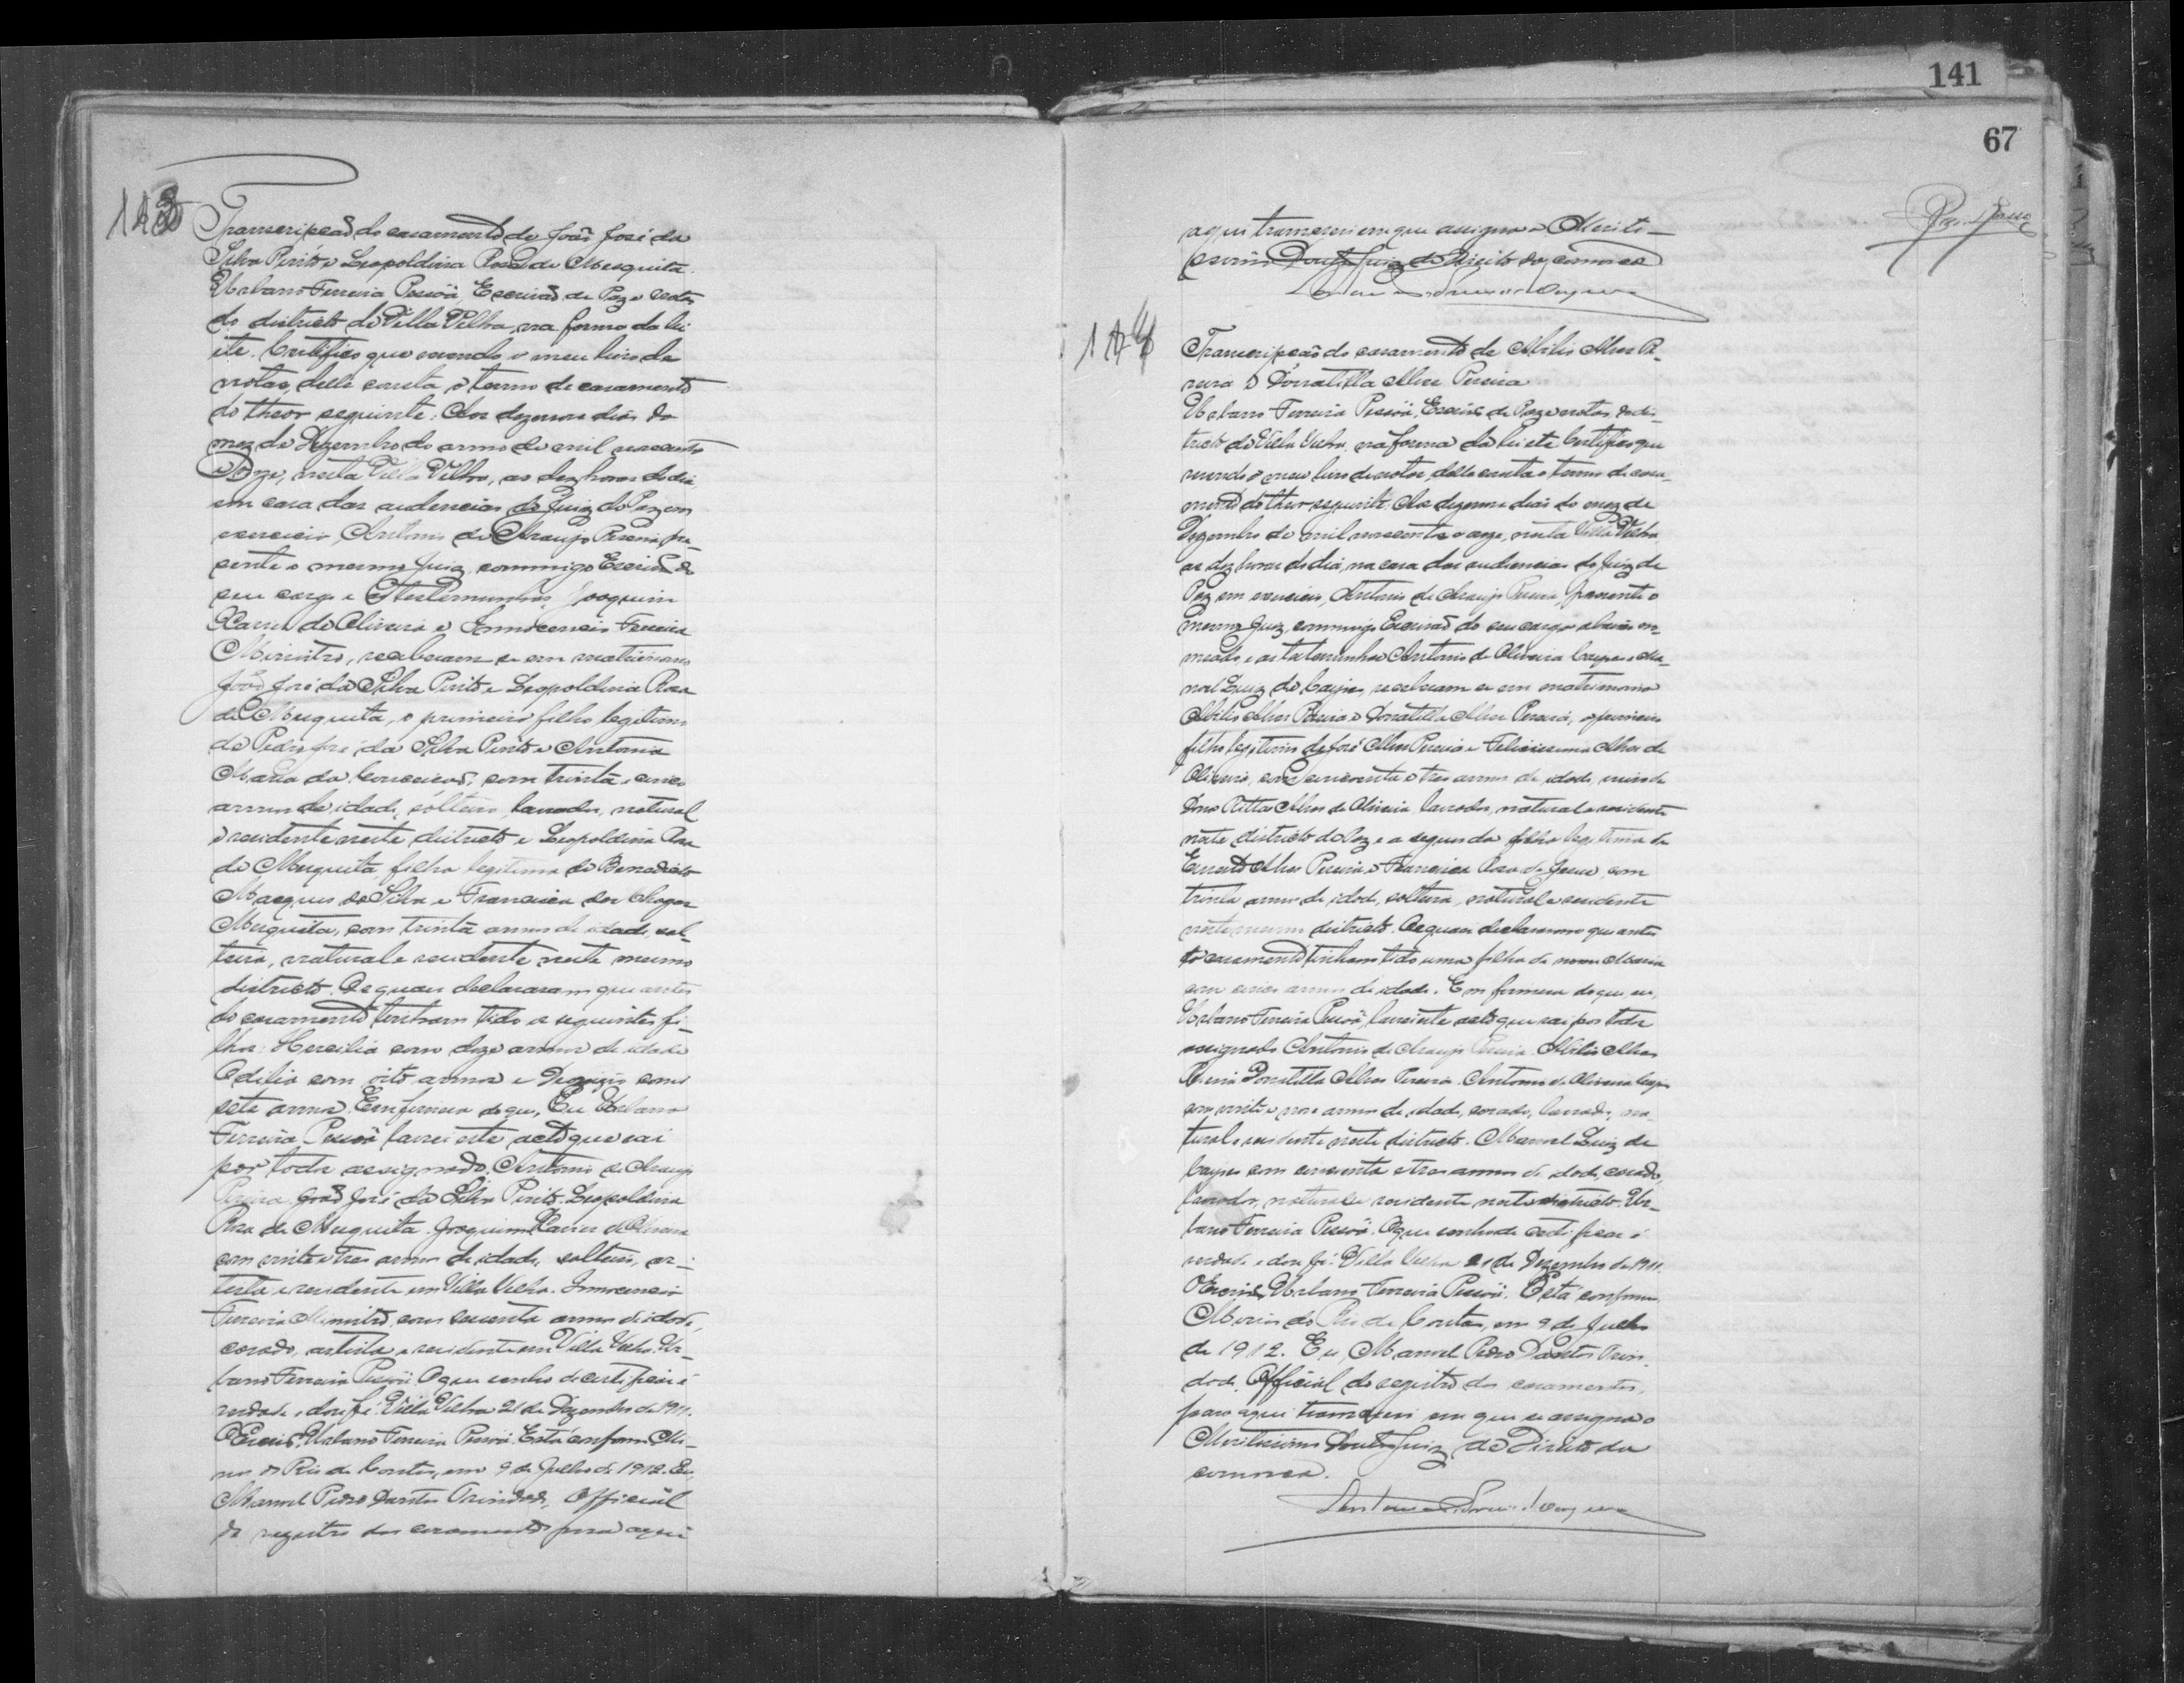 141
67
Transcripção do casamento de João José da
Silva Pinto e Leopoldina Rosa de Mesquita.
Urbano Ferreira Pessôa Escrivão de Paz e notas
do districto de Villa Velha, na forma da lei
etc. Certifico que revendo o meu livro de
notas, delle consta o termo de casamento
do theor seguinte: Aos dezenove dias do
mez de Dezembro do anno de mil novecentos
e onze, nesta Villa Velha, as dez horas do dia,
em casa das audencias do Juiz de Paz em
exercicio, Antonio de Araujo Pereira, pre-
sente o mesmo Juiz, commigo Escrivão de
seu cargo e Testemunhas, Joaquim
Xavier de Oliveira e Innocencio Ferreira
Ministro, receberam-se em matrimonio
João José da Silva Pinto e Leopoldina Rosa
de Mesquita, o primeiro filho legitimo
de Pedro José da Silva Pinto e Antonia
Maria da Conceicão, com trinta e cinco
annos de idade, solteiro, lavrador, natural
e residente neste districto e Leopoldina Rosa
de Mesquita filha legitima de Benedicto
Marques da Silva e Francisca das Chagas
Mesquita, com trinta annos de idade, sol-
teira, natural e residente neste mesmo
districto. Os quaes declararam que antes
do casamento tinham tido os seguintes fi-
lhos: Hercilia com doze annos de idade
Odilia com oito annos e com
sete annos. Em firmeza do que, Eu Urbano
Ferreira Pessôa lavrei este acto que vai
por todos assignado. Antonio de Araujo
Pereira. João José da Silva Pinto. Leopoldina
Rosa de Mesquita. Joaquim Xavier de Oliveira
com vinte e tres annos de idade, solteiro, ar-
tista e residente em Villa Velha. Innocencio
Ferreira Ministro, com sessenta annos de idade,
casado, artista e residente em Villa Velha. Ur-
bano Ferreira Pessôa. O que venho de certificar é
verdade e dou fé. Villa Velha 21 de Dezembro de 1911.
O Escrivão, Urbano Ferreira Pessôa. Está conforme. Mi-
nas do Rio de Contas, em 9 de Julho de 1912. Eu,
Manoel Pedro Dantas Trindade, Official
do registro dos casamentos para aqui
aqui transcrevi em que assigna o Meriti-
ssimo Doutor Juiz de Direito da comarca
Transcripção do casamento de Abilio Alves Pe-
reira e Donatilla Alves Pereira
Urbano Ferreira Pessôa, Escrivão de Paz e notas, do dis-
tricto de Villa Velha, na forma da lei etc. Certifico que
revendo o meu livro de notas, delle consta o termo de casa-
mento do theor seguinte: Aos dezenove dias do mez de
Dezembro de mil novecentos e onze, nesta Villa Velha,
as dez horas do dia, na casa das audiencias do Juiz de
Paz em exercicio, Antonio de Araujo Pereira, presente o
mesmo Juiz, commigo Escrivão do seu cargo abaixo no-
meado e as testemunhas Antonio de Oliveira e Ma-
noel Luiz de receberam-se em matrimonio
Abilio Alves Pereira e Donatilla Alves Pereira, o primeiro
filho legitimo de José Alves Pereira e Felicissima Alves de
Oliveira, com cincoenta e tres annos de idade, viuvo de
Dona Ritta Alves de Oliveira, lavrador, natural e residente
neste districto de Paz e a segunda filha legitima de
Ernesto Alves Pereira e Francisca Rosa de Jesus, com
trinta annos de idade, solteira, natural e residente
neste mesmo districto. Os quaes declararam que antes
do casamento tinham tido uma filha de nome Maria
com cinco annos de idade. Em firmeza do que, eu,
Urbano Ferreira Pessôa, lavrei este acto que vai por todos
assignado. Antonio de Araujo Pereira. Abilio Alves
Pereira Donatilla Alves Pereira. Antonio de Oliveira
com vinte e nove annos de idade, casado, lavrador, na-
tural e residente neste districto. Manoel Luiz de
com cincoenta e tres annos de idade, casado,
lavrador, natural e residente neste districto. Ur-
bano Ferreira Pessôa. O que venho de certificar é
verdade e dou fé. Villa Velha 21 de Dezembro de 1911.
O Escrivão, Urbano Ferreira Pessôa. Está conforme.
Minas do Rio de Contas, em 9 de Julho
de 1912. Eu, Manoel Pedro Dantas Trin-
dade, Official do registro dos casamentos,
para aqui transcrevi em que se assigna o
Meritissimo Doutor Juiz de Direito da
comarca.